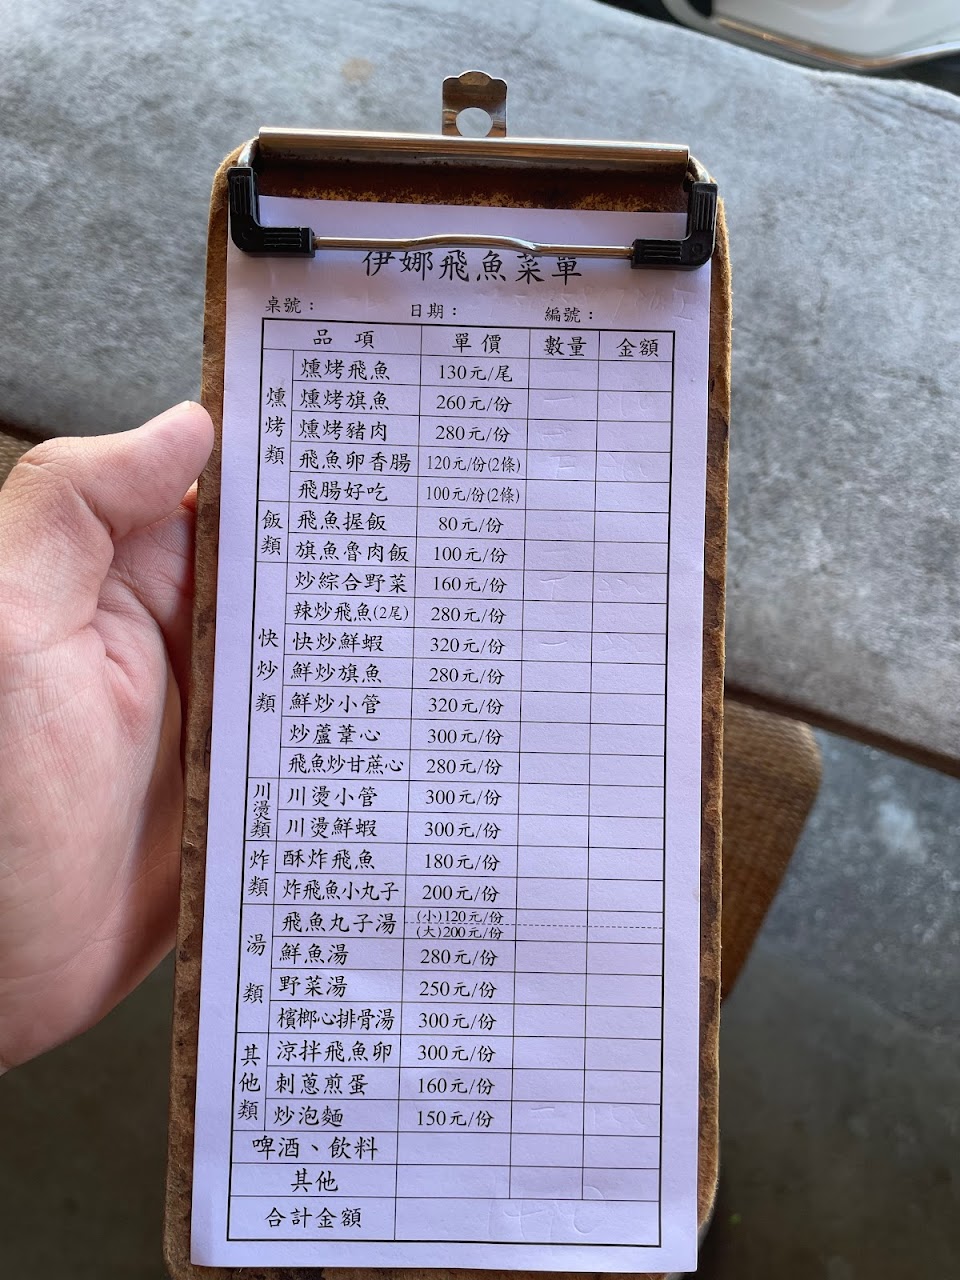 伊娜飛魚菜單
桌號： 日期： 編號：
品項 單價 數量 金額
燻烤類
燻烤飛魚 130元/尾
燻烤旗魚 260元/份
燻烤豬肉 280元/份
飛魚卵香腸 120元/份(2條)
飛腸好吃 100元/份(2條)
飯類
飛魚握飯 80元/份
旗魚魯肉飯 100元/份
快炒類
炒綜合野菜 160元/份
辣炒飛魚(2尾) 280元/份
快炒鮮蝦 320元/份
鮮炒旗魚 280元/份
鮮炒小管 320元/份
炒蘆葦心 300元/份
飛魚炒甘蔗心 280元/份
川燙類
川燙小管 300元/份
川燙鮮蝦 300元/份
炸類
酥炸飛魚 180元/份
炸飛魚小丸子 200元/份
湯類
飛魚丸子湯 (小)120元/份
(大)200元/份
鮮魚湯 280元/份
野菜湯 250元/份
檳榔心排骨湯 300元/份
其他類
涼拌飛魚卵 300元/份
刺蔥煎蛋 160元/份
炒泡麵 150元/份
啤酒、飲料
其他
合計金額